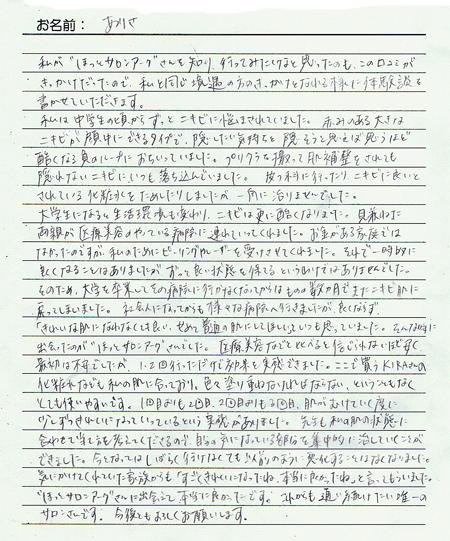 お名前： ありさ
私が"ほっとサロンアーク"さんを知り、行ってみたいなと思ったのも、この口コミが
きっかけだったので、私と同じ境遇の方のきっかけとなれる様に体験談を
書かせていただきます。
私は中学生の頃からずっとニキビに悩まされていました。赤みのある大きな
ニキビが顔中にできるタイプで、隠したい気持ちと隠そうと思えば思うほど
酷くなる負のループにおちいっていました。プリクラを撮って肌補整をされても
隠れないニキビにいつも落ち込んでいました。皮フ科に行ったりニキビに良いと
されている化粧水をためしたりしましたが一向に治りませんでした。
大学生になるに生活環境も変わり、ニキビは更に酷くなりました。見兼ねた
両親が医療美容のやっている病院に連れていってくれました。お金がある家庭では
なかったのですが、私のためにピーリングやレーザーを受けさせてくれました。それで一時的に
良くなることはありましたがずっと良い状態を保てるという訳ではありませんでした。
そのため、大学を卒業してその病院に行かなくなってからはものの数か月でまたニキビ肌に
戻ってしまいました。社会人になってからも様々な病院へ行きましたが、良くならず
「きれいな肌になれなくても良い、せめて普通の肌にしてほしい」といつも思っていました。そんな時に
出会ったのが"ほっとサロンアーク"さんでした。医療美容などと比べると信じられないほど安く
最初は不安でしたが、1、2回行っただけで効果を実感できました。ここで買うKIRAさんの
化粧水なども私の肌に合っており、色々塗り重ねなければならない、ということもなく
とても使いやすいです。1回目よりも2回目、2回目よりも3回目、肌がむけていく度に
少しずつきれいになっていっているという実感がありました。先生も私の肌の状態に
合わせて当て方を考えてくださるので、自分の気になっている部分を集中的に治していくことが
できました。今となってはしばらく行けなくても以前のように悪化することはなくなりました。
気にかけてくれていた家族からも「すごくきれいになったね、本当に良かったね」と言ってもらいました。
"ほっとサロンアーク"さんに出会えて本当に良かったです。これからも通い続けたい唯一の
サロンさんです。今後ともよろしくお願いします。